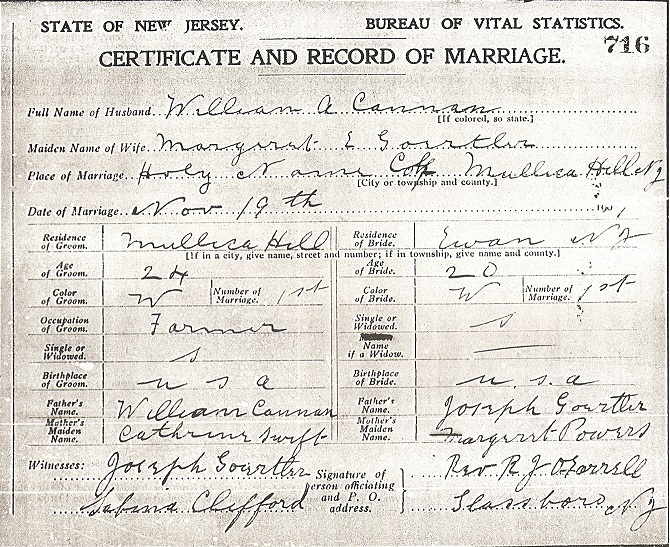 STATE OF NEW JERSEY. BUREAU OF VITAL STATISTICS.
716
CERTIFICATE AND RECORD OF MARRIAGE.
Full Name of Husband. William A Cannan
[If colored, so state.]
Maiden Name of Wife. Margaret E Goertler
Place of Marriage. Holy Name Mullica Hill NJ
[City or township and county.]
Date of Marriage. Nov 19th 190
Residence of Groom. Mullica Hill Residence of Bride. Ewan NJ
[If in a city, give name, street and number; if in township, give name and county.]
Age of Groom. 24 Age of Bride. 20
Color of Groom. W Number of Marriage. 1st Color of Bride. W Number of Marriage. 1st
Occupation of Groom. Farmer Single or Widowed. S
Single or Widowed. S Name if a Widow. —
Birthplace of Groom. U S A Birthplace of Bride. U. S. A
Father's Name. William Cannan Father's Name. Joseph Goertler
Mother's Maiden Name. Cathrine Swift Mother's Maiden Name. Margaret Powers
Witnesses: Joseph Goertler Signature of person officiating and P. O. address. Rev R J O'Farrell
Sabina Clifford Glassboro NJ